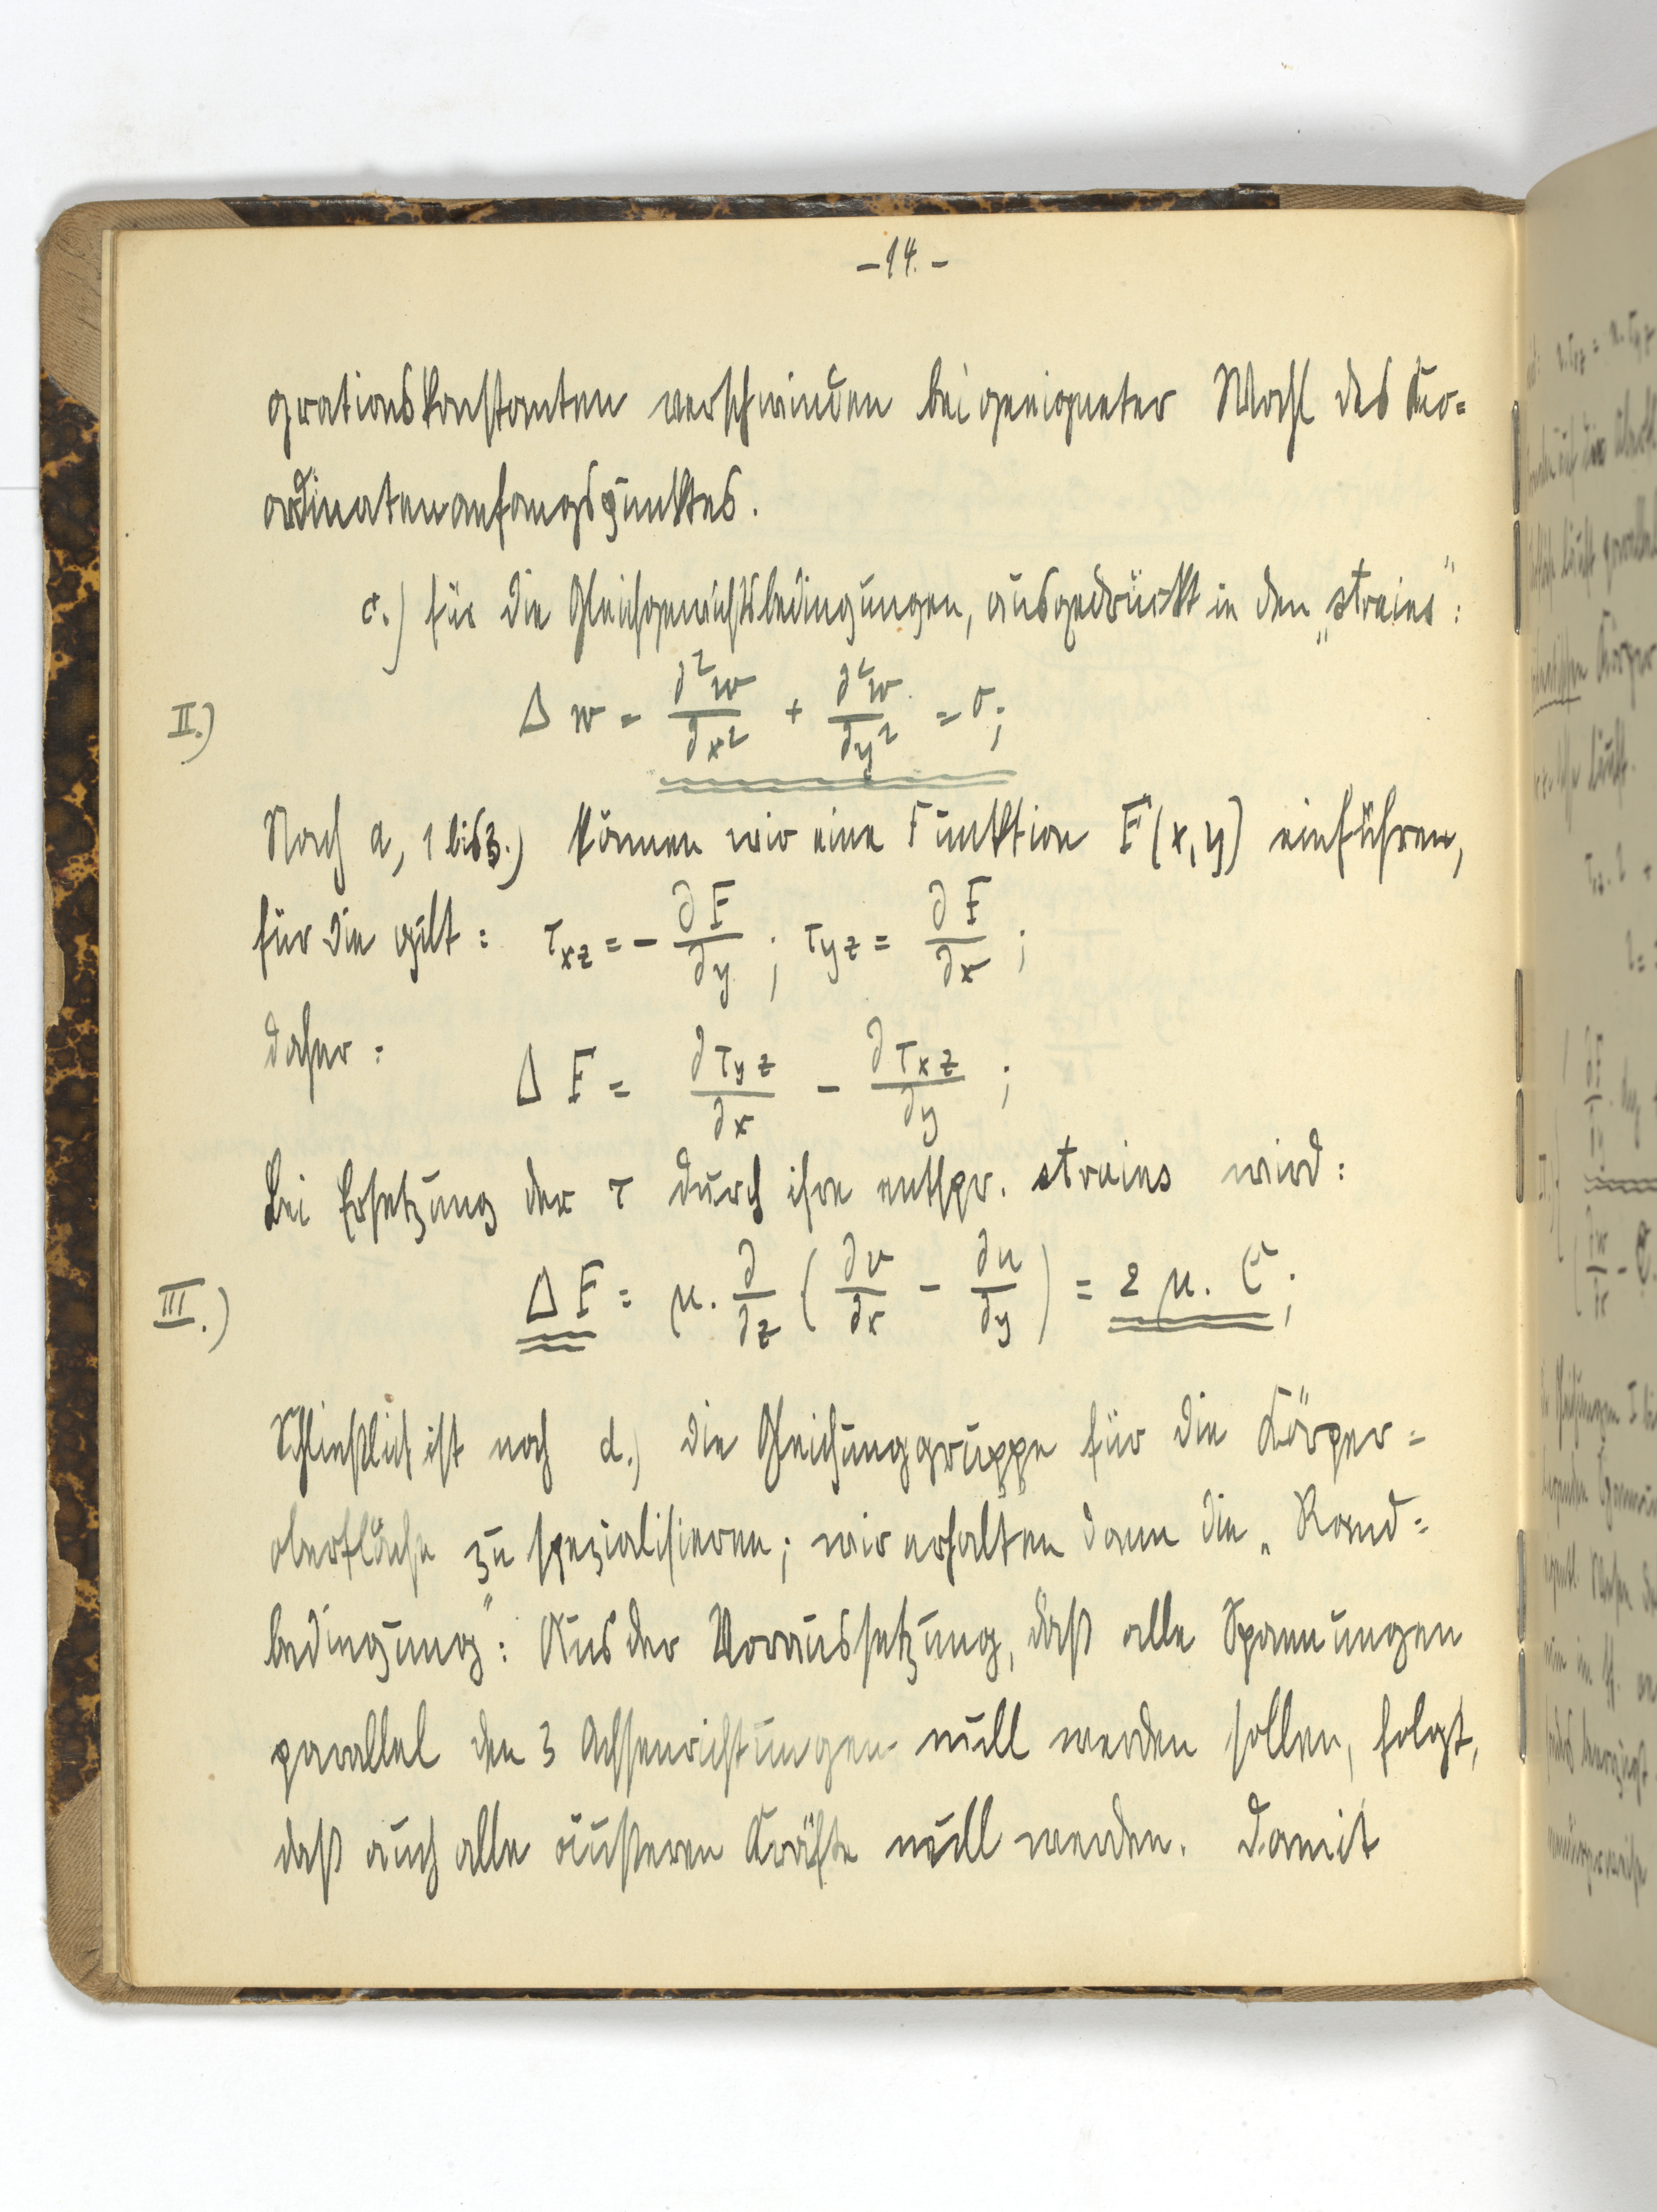 -14.-
grationskonstanten verschwinden bei geeigneter Wahl des Ko-
ordinatenanfangspunktes.
c.) für die Gleichgewichtsbedingungen, ausgedrückt in den „strains":
II.) Δ w = ∂²w/∂x² + ∂²w/∂y² = 0;
Nach a, 1 bis 3.) können wir eine Funktion F(x,y) einführen,
für die gilt: τxz = - ∂F/∂y ; τyz = ∂F/∂x ;
daher: Δ F = ∂τyz/∂x - ∂τxz/∂y ;
bei Ersetzung der τ durch ihre entspr. strains wird:
III.) Δ F = μ. ∂/∂z (∂v/∂x - ∂u/∂y) = 2 μ. C;
Schließlich ist noch d.) die Gleichunggruppe für die Körper-
oberfläche zu spezialisieren; wir erhalten dann die „Rand-
bedingung": Aus der Voraussetzung, daß alle Spannungen
parallel den 3 Achsenrichtungen null werden sollen, folgt,
daß auch alle äußeren Kräfte null werden. Damit